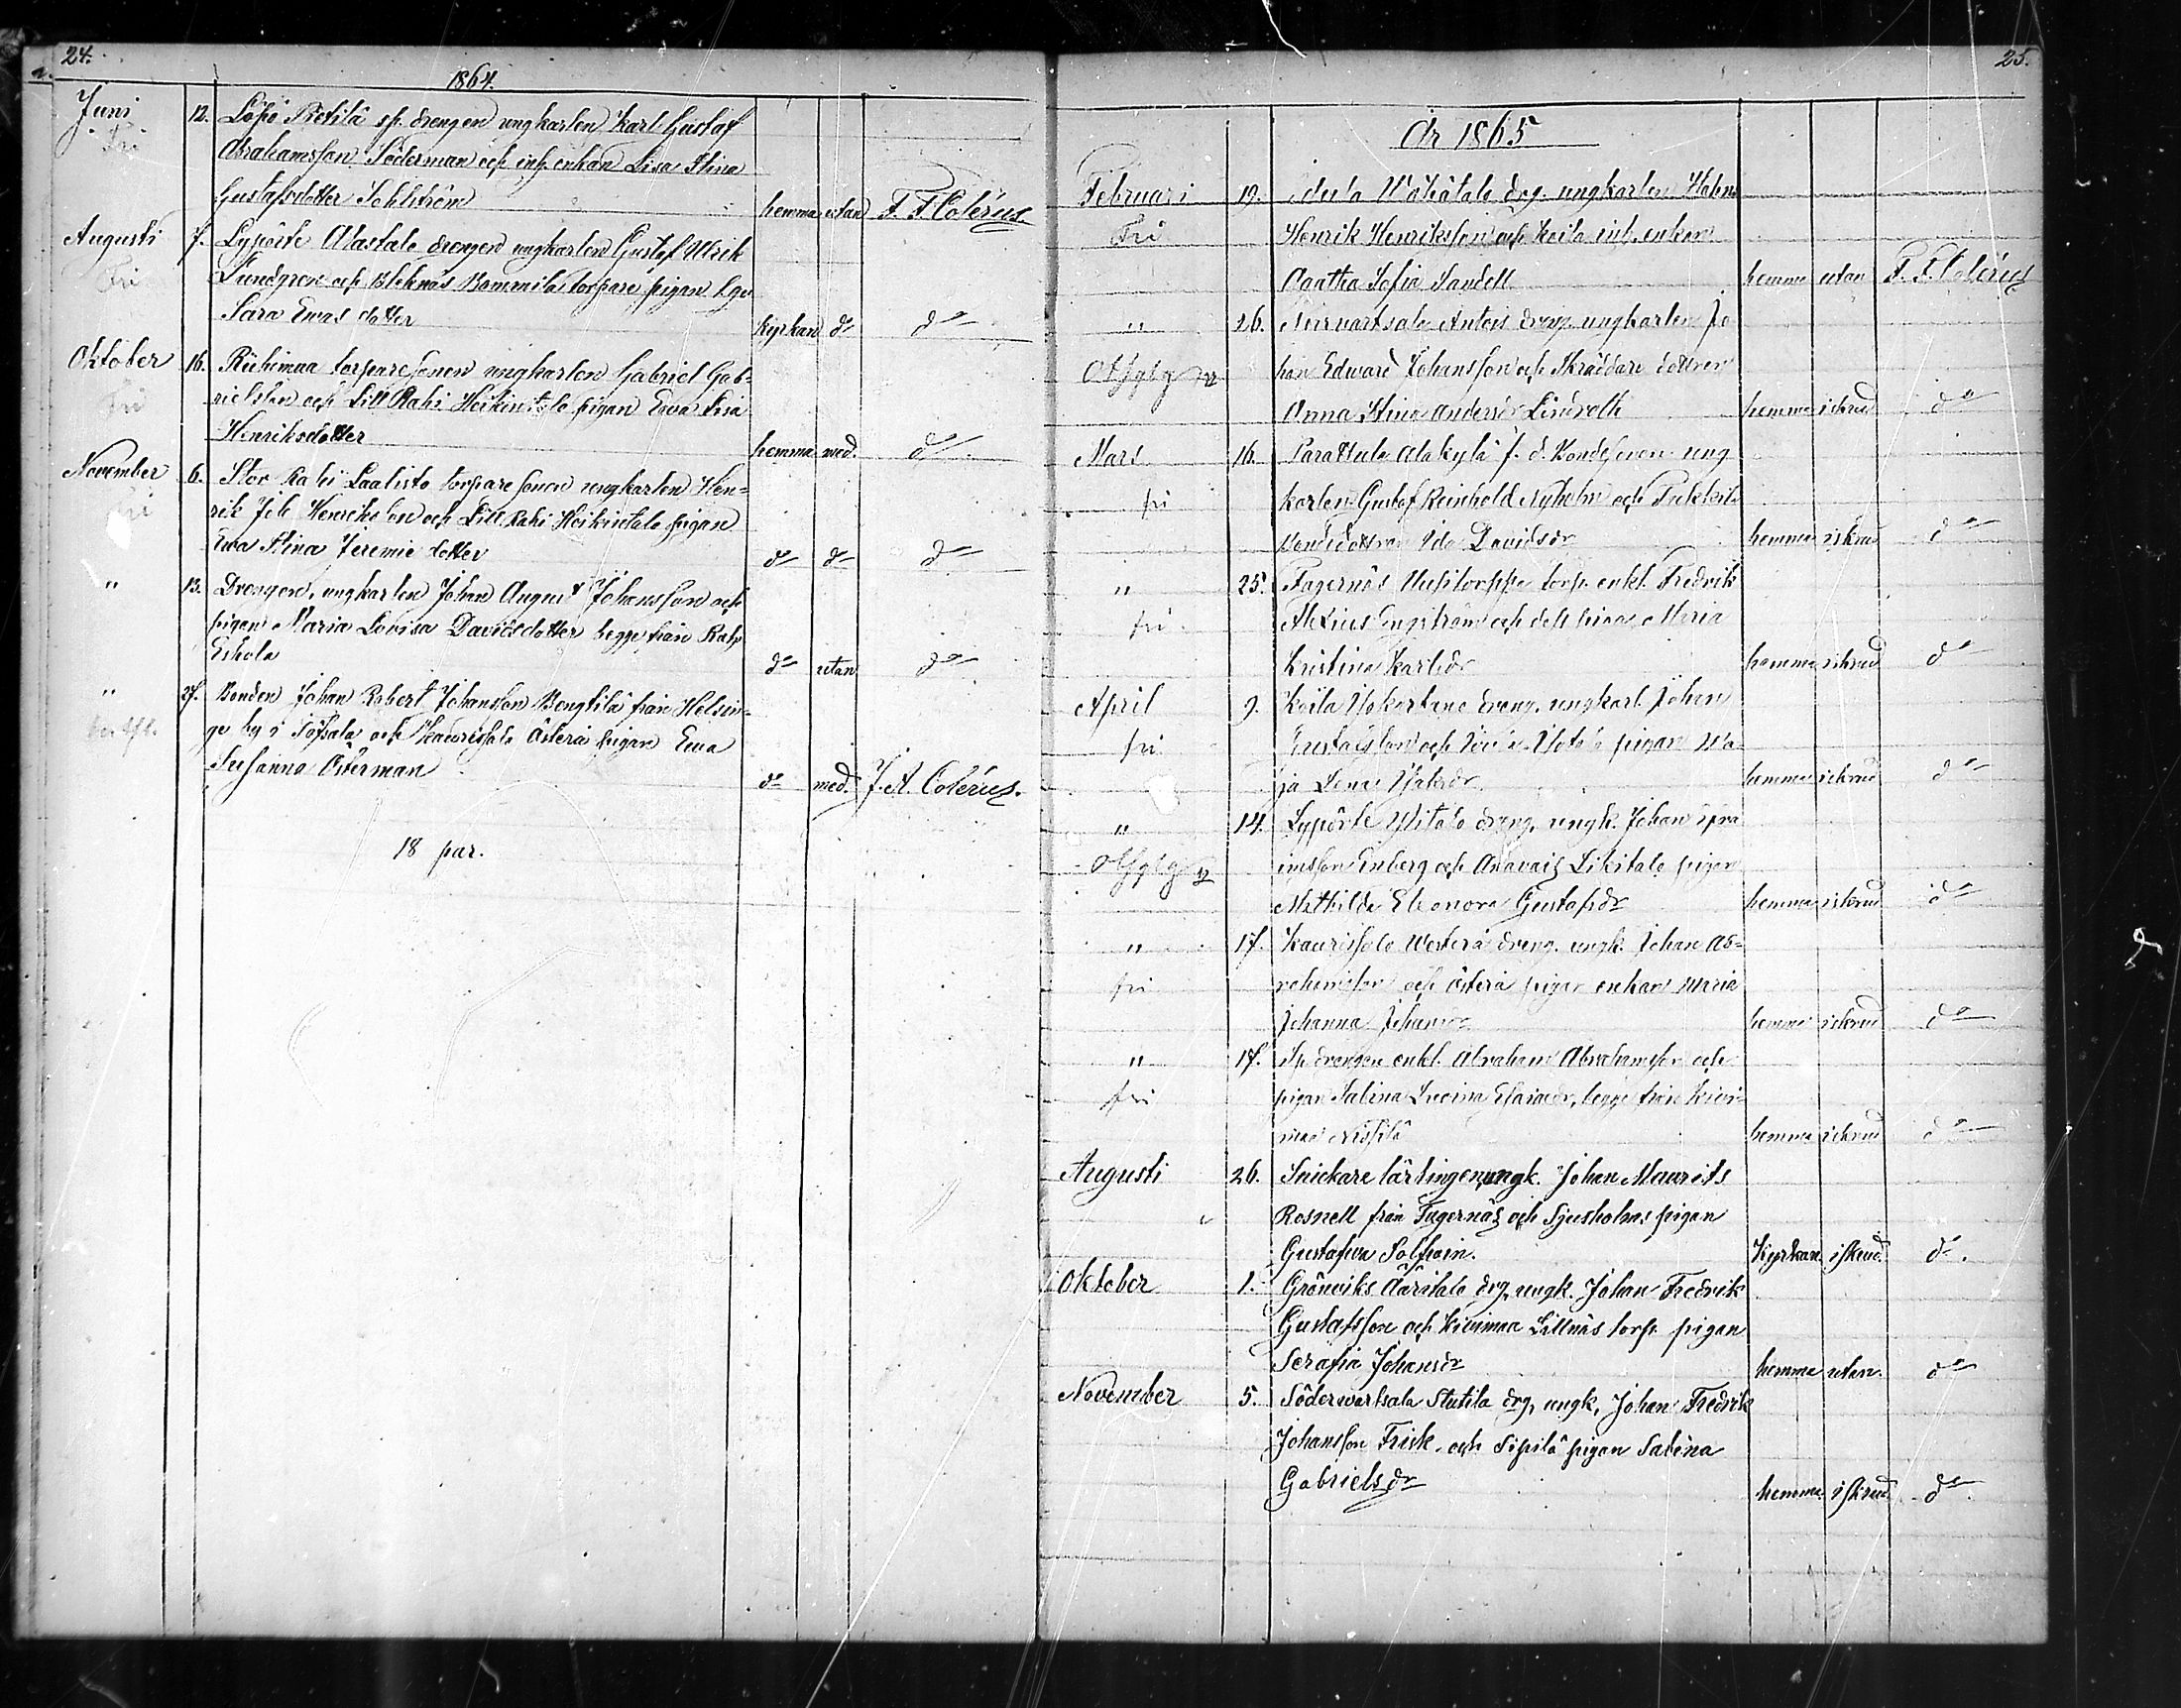 24.
1864.
Juni 12. Löpö Retilä sp. drengen ungkarlen Karl Gustaf
Fri Abrahamsson Söderman och inh. enkan Lisa Stina
Gustafsdotter Sohlström hemma utan F. F. Colérus
Augusti 7. Lypörte Alastalo drengen ungkarlen Gustaf Ulrik
Fri Lundgren och Bleknäs torpare pigan
Sara Ewas dotter Kyrkan do do
Oktober 16. Riihimaa torparesonen ungkarlen Gabriel Gab-
Fri rielsson och Lill Rahi Heikintalo pigan Ewa Lisa
Henriksdotter hemma med. do
November 6. Stor Rahi Laalisto torpare sonen ungkarlen Hen-
Fri rik Joh. Henriksson och Lill Rahi Heikintalo pigan
Ewa Stina Jeremie dotter do do do
" 13. Drengen, ungkarlen Johan August Johansson och
pigan Maria Lovisa Davidsdotter begge från Rahi
Eskola do utan do
" 27. Bonden Johan Robert Johansson Bengtilä från Helsin-
ge by i Töfsala och Kaurissalo Österå pigan Ewa
Susanna Österman do med. F. A. Colérus.
18 par.
25.
År 1865
Februari 19. drg. ungkarlen
Fri Henrik Henriksson och Keila inh. enkan
Sofia Sandell hemma utan F. F. Colérus
" 26. Nirvartsala Antois dreng. ungkarlen Jo
han Edward Johansson och Skräddare dottren
Anna Stina Andersdr Lindroth hemma i skrud do
Mars 16. Parattula Alakylä f. d. Bondesonen ung
fri karlen Gustaf Reinhold Nyholm och
Bondedottren Ida Davidsdr hemma i skrud do
" 25. Fagernäs Uusitorppa torp. enkl. Fredrik
fri Engström och dess piga Maria
Kristina Karlsdr hemma i skrud do
April 9. Keila dreng. ungkarl. Johan
fri Gustafsson och pigan Ma-
ja Lena hemma i skrud do
" 14. Lypörte Ylitalo dreng. ungk. Johan
Enberg och Anavais Likitalo pigan
Mathilda Eleonora Gustafsdr hemma i skrud do
" 17. Kaurissalo Westerå dreng. ungk. Johan Ab-
fri rahamsson och Österå pigan enkan Maria
Johanna Johansdr hemma i skrud do
" 17. Sp. drengen enkl. Abraham Abrahamsson och
fri pigan Sabina Lovina Esaiaedr, begge från Kivi-
maa Nissilä hemma i skrud do
Augusti 26. Snickare lärlingen ungk. Johan Maurits
" Rosnell från Fagernäs och Sjusholmas pigan
Gustafwa Kyrkan i skrud. do.
Oktober 1. Grönviks Ääritalo drg. ungk. Johan Fredrik
Gustafsson och Kivimaa Lillnäs torp. pigan
Serafia Johansdr hemma utan. do
November 5. Södervartsala Stutila drg. ungk. Johan Fredrik
Johansson Frisk och Sipilä pigan Sabina
Gabrielsdr hemma i skrud do